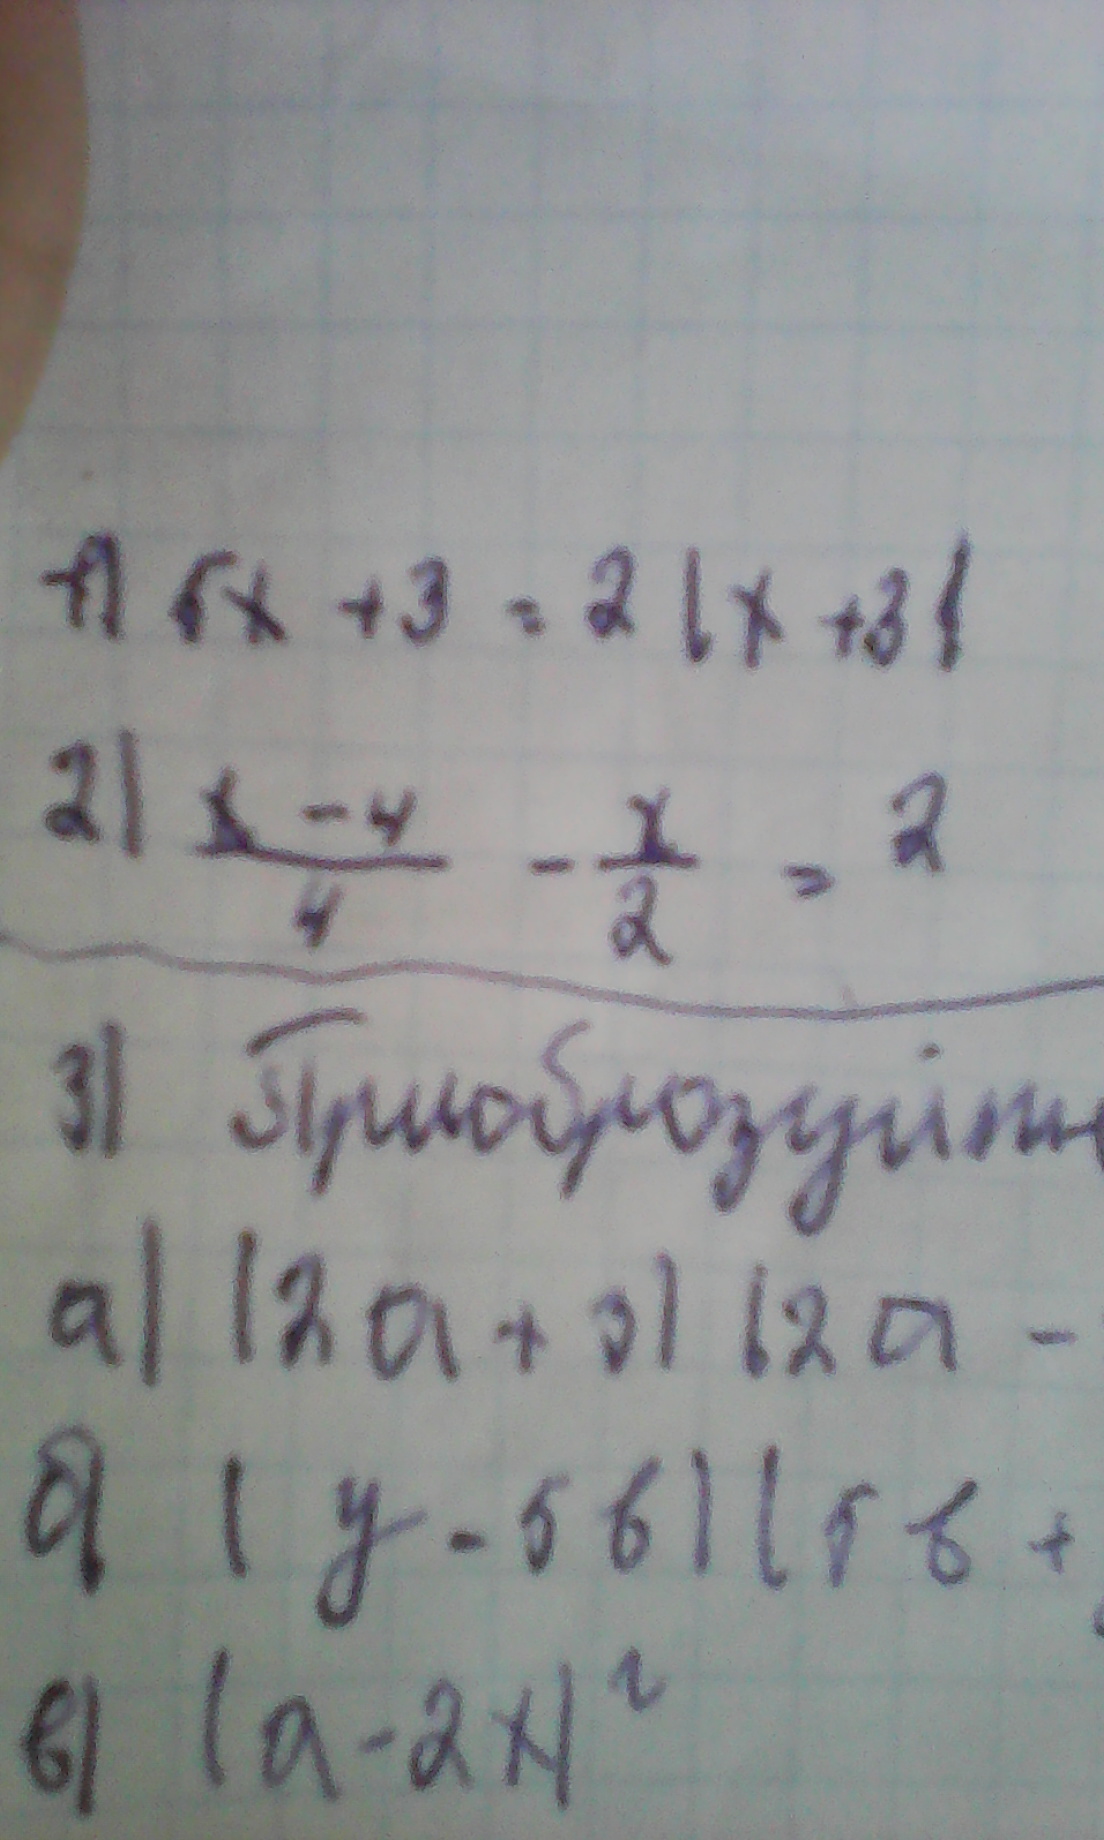 1) 5x + 3 = 2(x + 3)
2) \frac{x - 4}{4} - \frac{x}{2} = 2
3) Приоброзуйте
а) (2a + 3)(2a -
б) (y - 5b)(5b +
в) (a - 2x)²